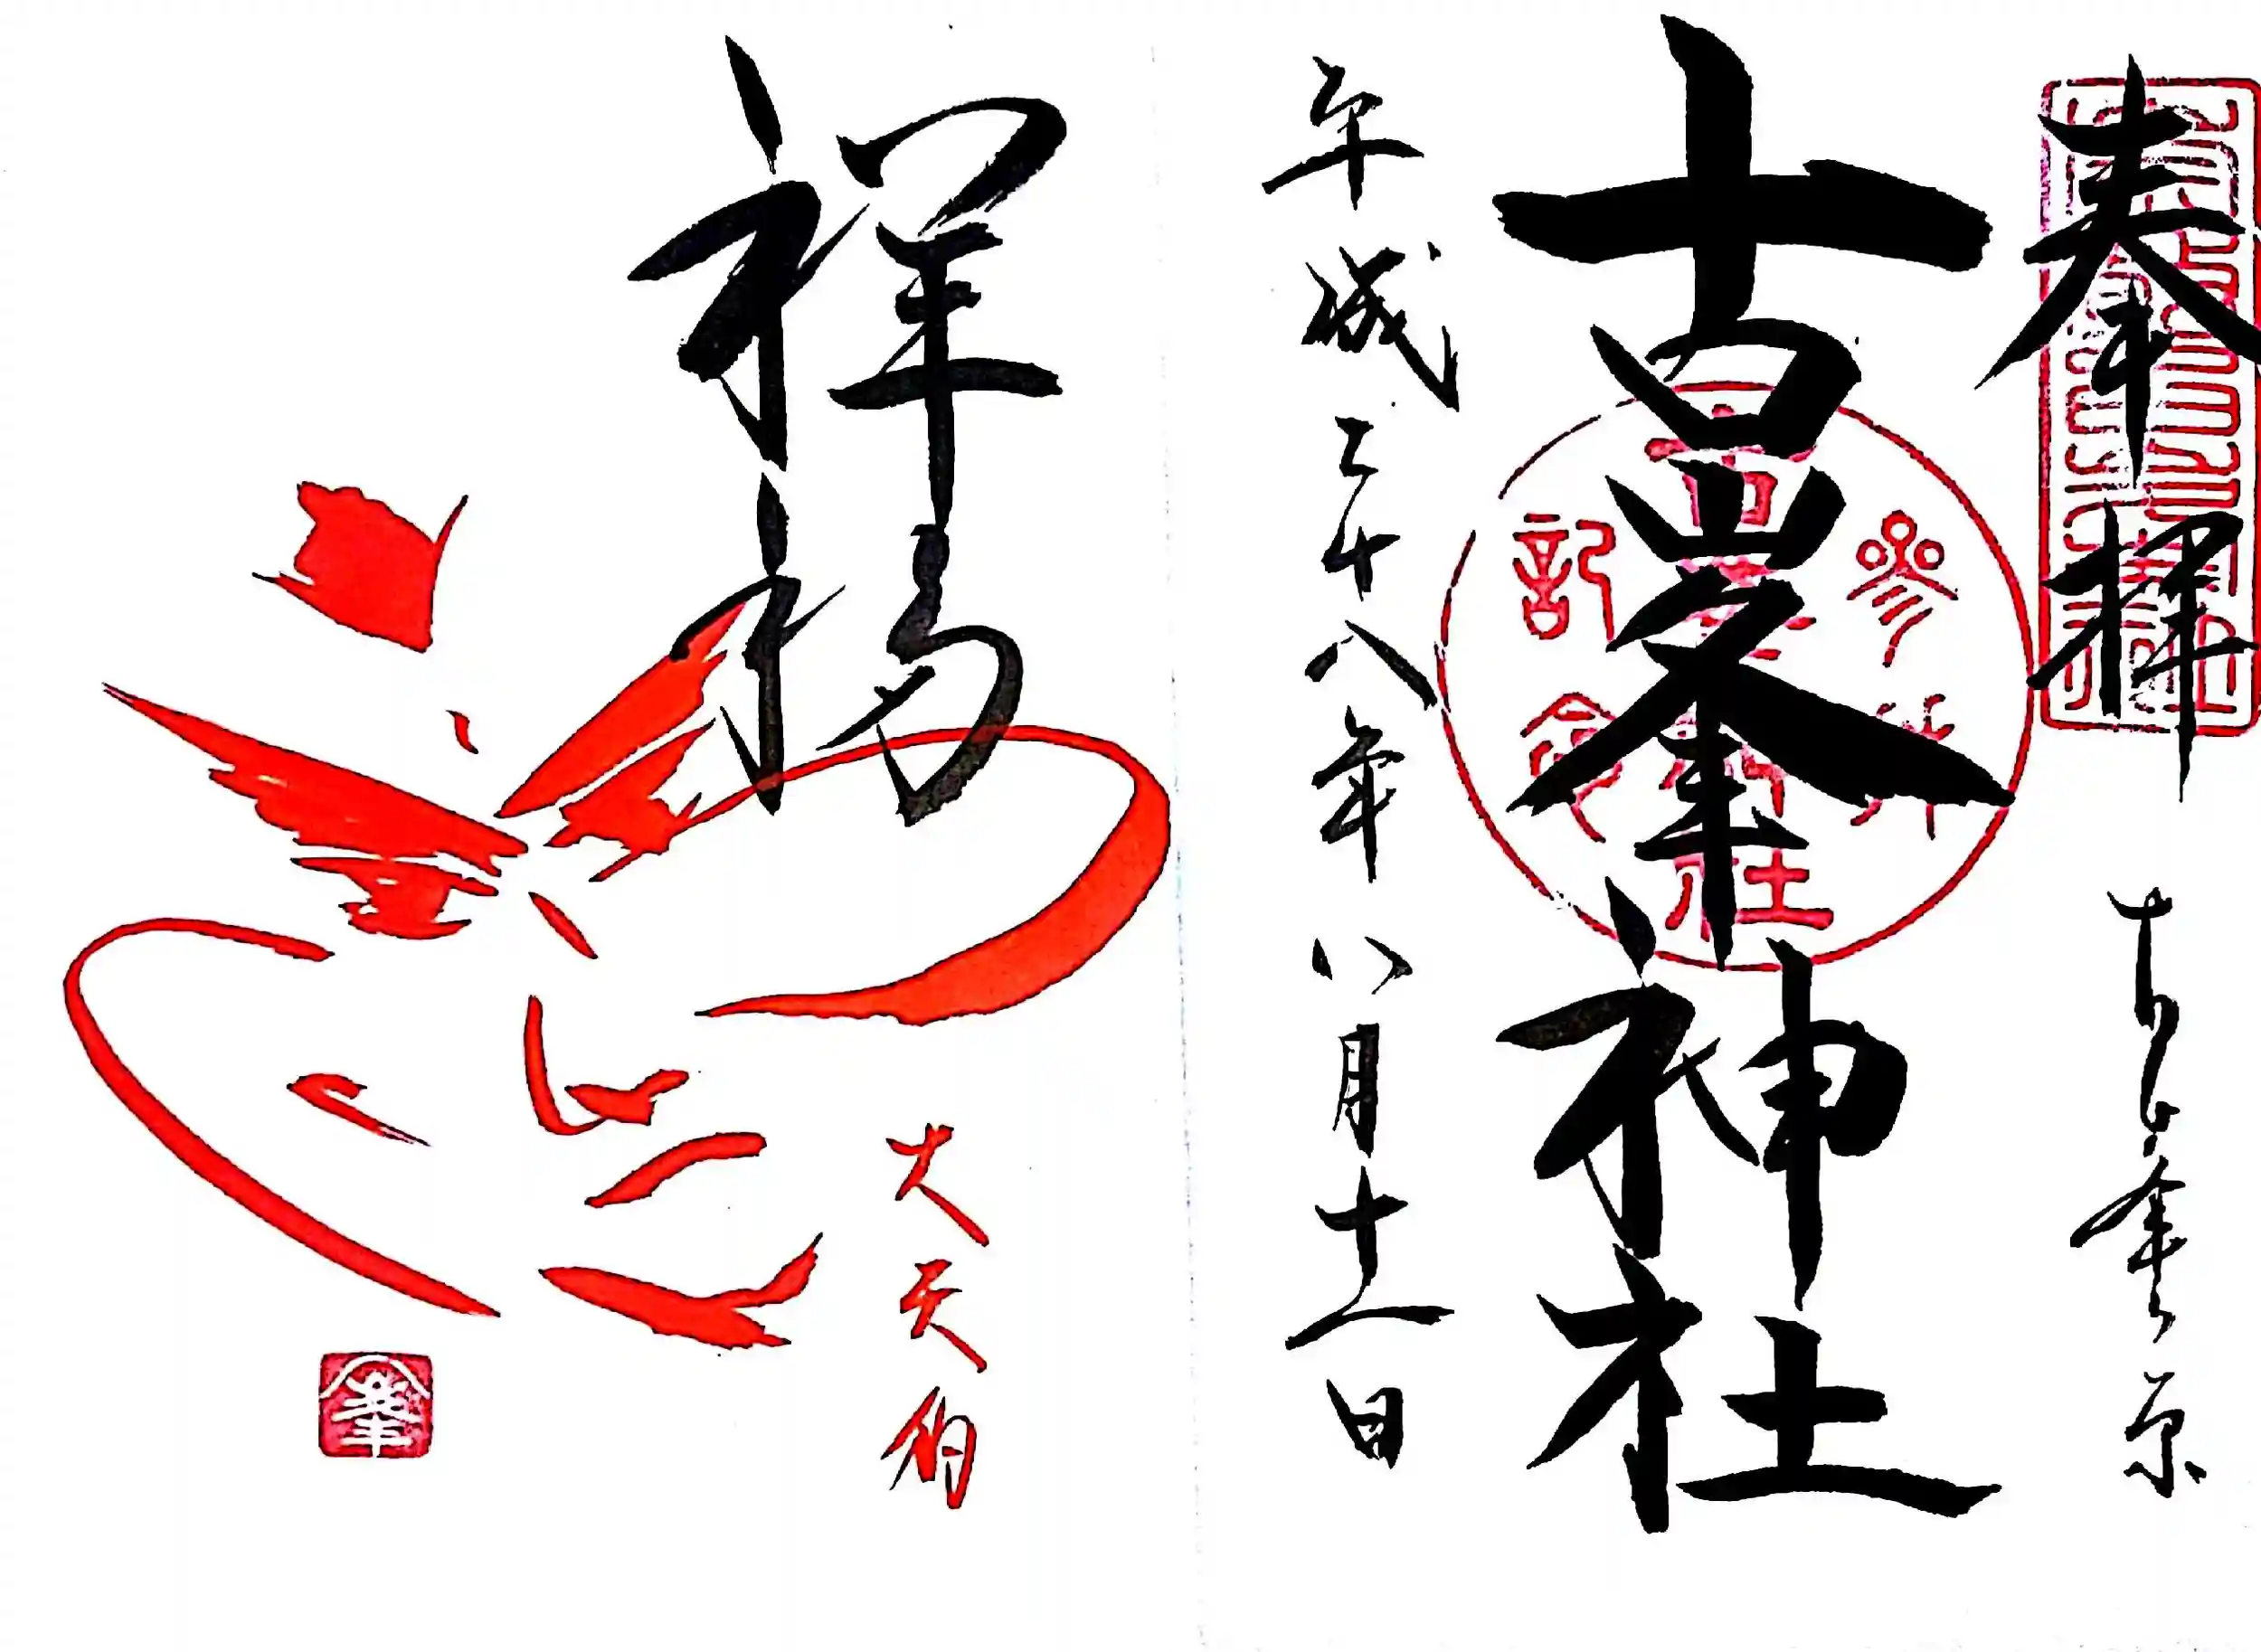 奉拝
古峯原
古峯神社
参拝
古峯神社
記念
平成二十八年八月十一日
祥福
大天狗
峯